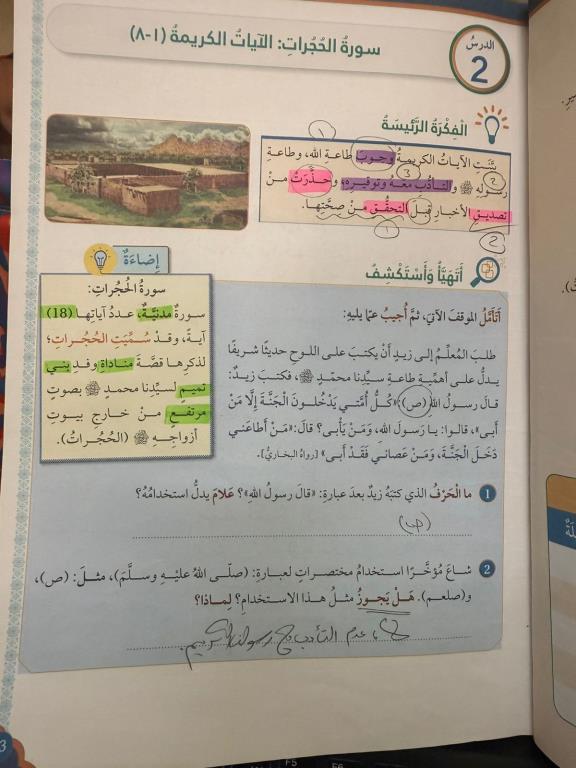 الدرس
2
سورةُ الحُجُراتِ: الآياتُ الكريمةُ (١-٨)
الْفِكْرَةُ الرَّئيسَةُ
1
بيَّنَتِ الآياتُ الكريمةُ وجوبَ طاعةِ اللهِ، وطاعةِ
2
3
رسولِهِ ﷺ والتأدُّبَ معَهُ وتوقيرِهِ، وحذَّرَتْ منْ
تصديقِ الأخبارِ قبلَ التحقُّقِ منْ صحَّتِها.
1
2
أَتَهَيَّأُ وَأَسْتَكْشِفُ
إضاءَةٌ
سورةُ الحُجُراتِ:
سورةٌ مدنيَّةٌ، عددُ آياتِها (18)
آيةً، وقدْ سُمِّيَتِ الحُجُراتِ؛
لذكرِها قصَّةَ مناداةِ وفدِ بني
تميمٍ لسيِّدِنا محمدٍ ﷺ بصوتٍ
مرتفعٍ منْ خارجِ بيوتِ
أزواجِهِ ﷺ (الحُجُراتُ).
أَتَأَمَّلُ الموقفَ الآتيَ، ثمَّ أُجيبُ عمّا يليهِ:
طلبَ المُعلِّمُ إلى زيدٍ أنْ يكتبَ على اللوحِ حديثًا شريفًا
يدلُّ على أهمِّيةِ طاعةِ سيِّدِنا محمّدٍ ﷺ، فكتبَ زيدٌ:
قالَ رسولُ اللهِ (ص): «كُلُّ أُمَّتي يَدْخُلونَ الْجَنَّةَ إِلَّا مَنْ
أَبى»، قالوا: يا رَسولَ اللهِ، وَمَنْ يَأْبى؟ قالَ: «مَنْ أَطاعَني
دَخَلَ الْجَنَّةَ، وَمَنْ عَصاني فَقَدْ أَبى» [رواهُ البخاريُّ].
1 ما الْحَرْفُ الذي كتبَهُ زيدٌ بعدَ عبارةِ: «قالَ رسولُ اللهِ»؟ عَلامَ يدلُّ استخدامُهُ؟
(ص)
2 شاعَ مُؤخَّرًا استخدامُ مختصراتٍ لعبارةِ: (صلّى اللهُ عليهِ وسلَّمَ)، مثلَ: (ص)،
و(صلعم). هَلْ يَجوزُ مثلُ هذا الاستخدامِ؟ لِماذا؟
لا، عدم التأدب مع رسولنا الكريم.
3
F5
F6